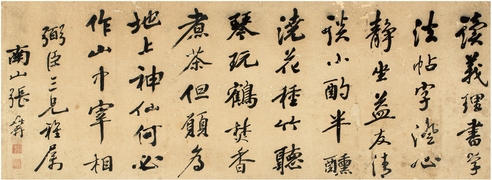 讀義理書學
法帖字澄心
靜坐益友清
談小酌半醺
澆花種竹聽
琴玩鶴焚香
煮茶但願為
地上神仙何必
作山中宰相
弼臣三兄雅屬
南山張維屏